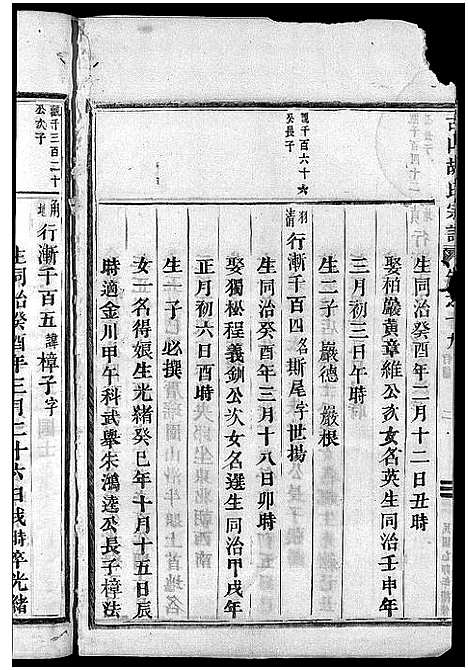 古山胡氏宗譜
生同治癸酉年二月十二日丑時
娶柏巖黃章維公次女名英生同治壬申年
三月初三日午時
生二子 巖德 巖根
觀千百六十六
公長子
清 行漸千百四名斯尾字世揚
生同治癸酉年三月十八日卯時
娶獨松程義釧公次女名選生同治甲戌年
正月初六日酉時
生一子 必撰
女一名得娘生光緒癸巳年十月十五日辰
時適金川甲午科武舉朱鴻逵公長子樟法
觀千三百二十
公次子
角 行漸千百五諱樟子字
生同治癸酉年三月二十六日戌時卒光緒